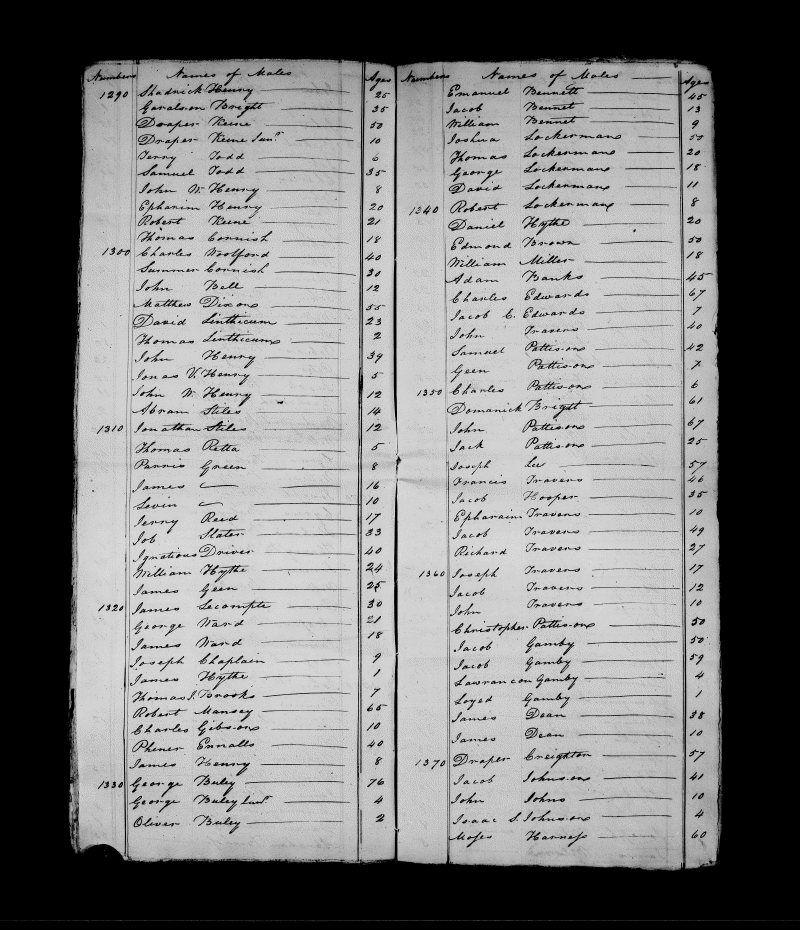 Numbers Names of Males Ages
1290 Shadrick Henry 25
Garalson Bright 35
Draper Keine 50
Draper Keine Junr 10
Jerry Todd 6
Samuel Todd 35
John W. Henry 8
Epharim Henry 20
Robert Keene 21
Thomas Cornish 18
1300 Charles Woolford 40
Summer Cornish 30
John Bell 12
Matthew Dixon 55
David Linthicum 23
Thomas Linthicum 2
John Henry 39
Jonas V. Henry 5
John W. Henry 12
Abram Stiles 14
1310 Jonathan Stiles 12
Thomas Retta 5
Parris Green 8
James 16
Levin 10
Jerry Reed 17
Job Slater 33
Ignatious Driver 40
William Hythe 24
James Geen 25
1320 James Lecompte 30
George Ward 21
James Ward 18
Joseph Chaplain 9
James Hythe 1
Thomas J. Brooks 7
Robert Mansey 65
Charles Gibson 10
Phener Ennalls 40
James Henry 8
1330 George Buley 76
George Buley Junr 4
Oliver Buley 2
Numbers Names of Males Ages
Emanuel Bennett 45
Jacob Bennet 13
William Bennet 9
Joshua Lockerman 50
Thomas Lockerman 20
George Lockerman 18
David Lockerman 11
1340 Robert Lockerman 8
Daniel Hythe 20
Edmond Brown 50
William Miller 18
Adam Banks 45
Charles Edwards 67
Jacob C. Edwards 7
John Travers 40
Samuel Pattison 42
Geen Pattison 7
1350 Charles Pattison 6
Domanick Bright 61
John Pattison 67
Jack Pattison 25
Joseph Lee 57
Francis Travers 46
Jacob Hooper 35
Epharaim Travers 10
Jacob Travers 49
Richard Travers 27
1360 Joseph Travers 17
Jacob Travers 12
John Travers 10
Christopher Pattison 50
Jacob Gamby 50
Jacob Gamby 59
Lawrancou Gamby 4
Loyed Gamby 1
James Dean 38
James Dean 10
1370 Draper Creighton 57
Jacob Johnson 41
John Johns 10
Isaac S. Johnson 4
Moses Harness 60